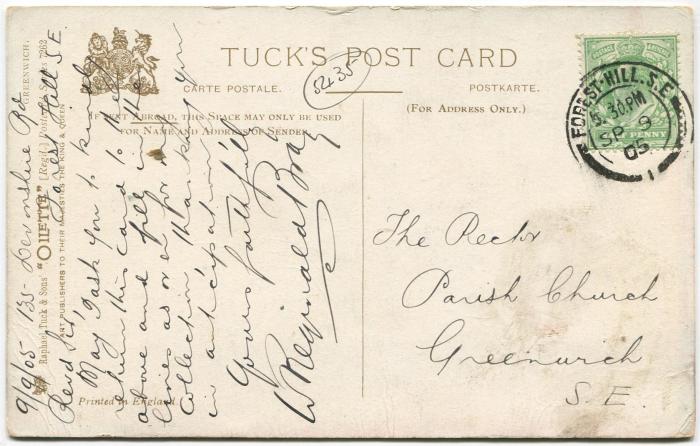 TUCK'S POST CARD
CARTE POSTALE.
POSTKARTE.
(FOR ADDRESS ONLY.)
IF SENT ABROAD, THIS SPACE MAY ONLY BE USED
FOR NAME AND ADDRESS OF SENDER.
5435
GREENWICH.
Raphael Tuck & Sons' "OILETTE" [Regd.] Postcard Series 7262
ART PUBLISHERS TO THEIR MAJESTIES THE KING & QUEEN
Printed in England.
9/9/05 135 Devonshire Rd
Forest Hill S.E.
Revd Sir,
May I ask you to kindly
return this card to me
above and fill in the
lines as on it for my
collection, thanking you
in anticipation
Yours faithfully
W Reginald Bray
FOREST-HILL. S.E.
5.30PM
SP 9
05
1
POSTAGE & REVENUE
HALFPENNY
The Rector
Parish Church
Greenwich
S.E.